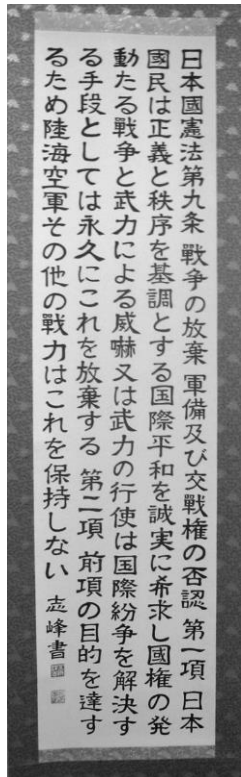 日本國憲法第九条 戦争の放棄 軍備及び交戦権の否認 第一項 日本
國民は正義と秩序を基調とする国際平和を誠実に希求し國権の発
動たる戦争と武力による威嚇又は武力の行使は国際紛争を解決す
る手段としては永久にこれを放棄する 第二項 前項の目的を達す
るため陸海空軍その他の戦力はこれを保持しない 志峰書